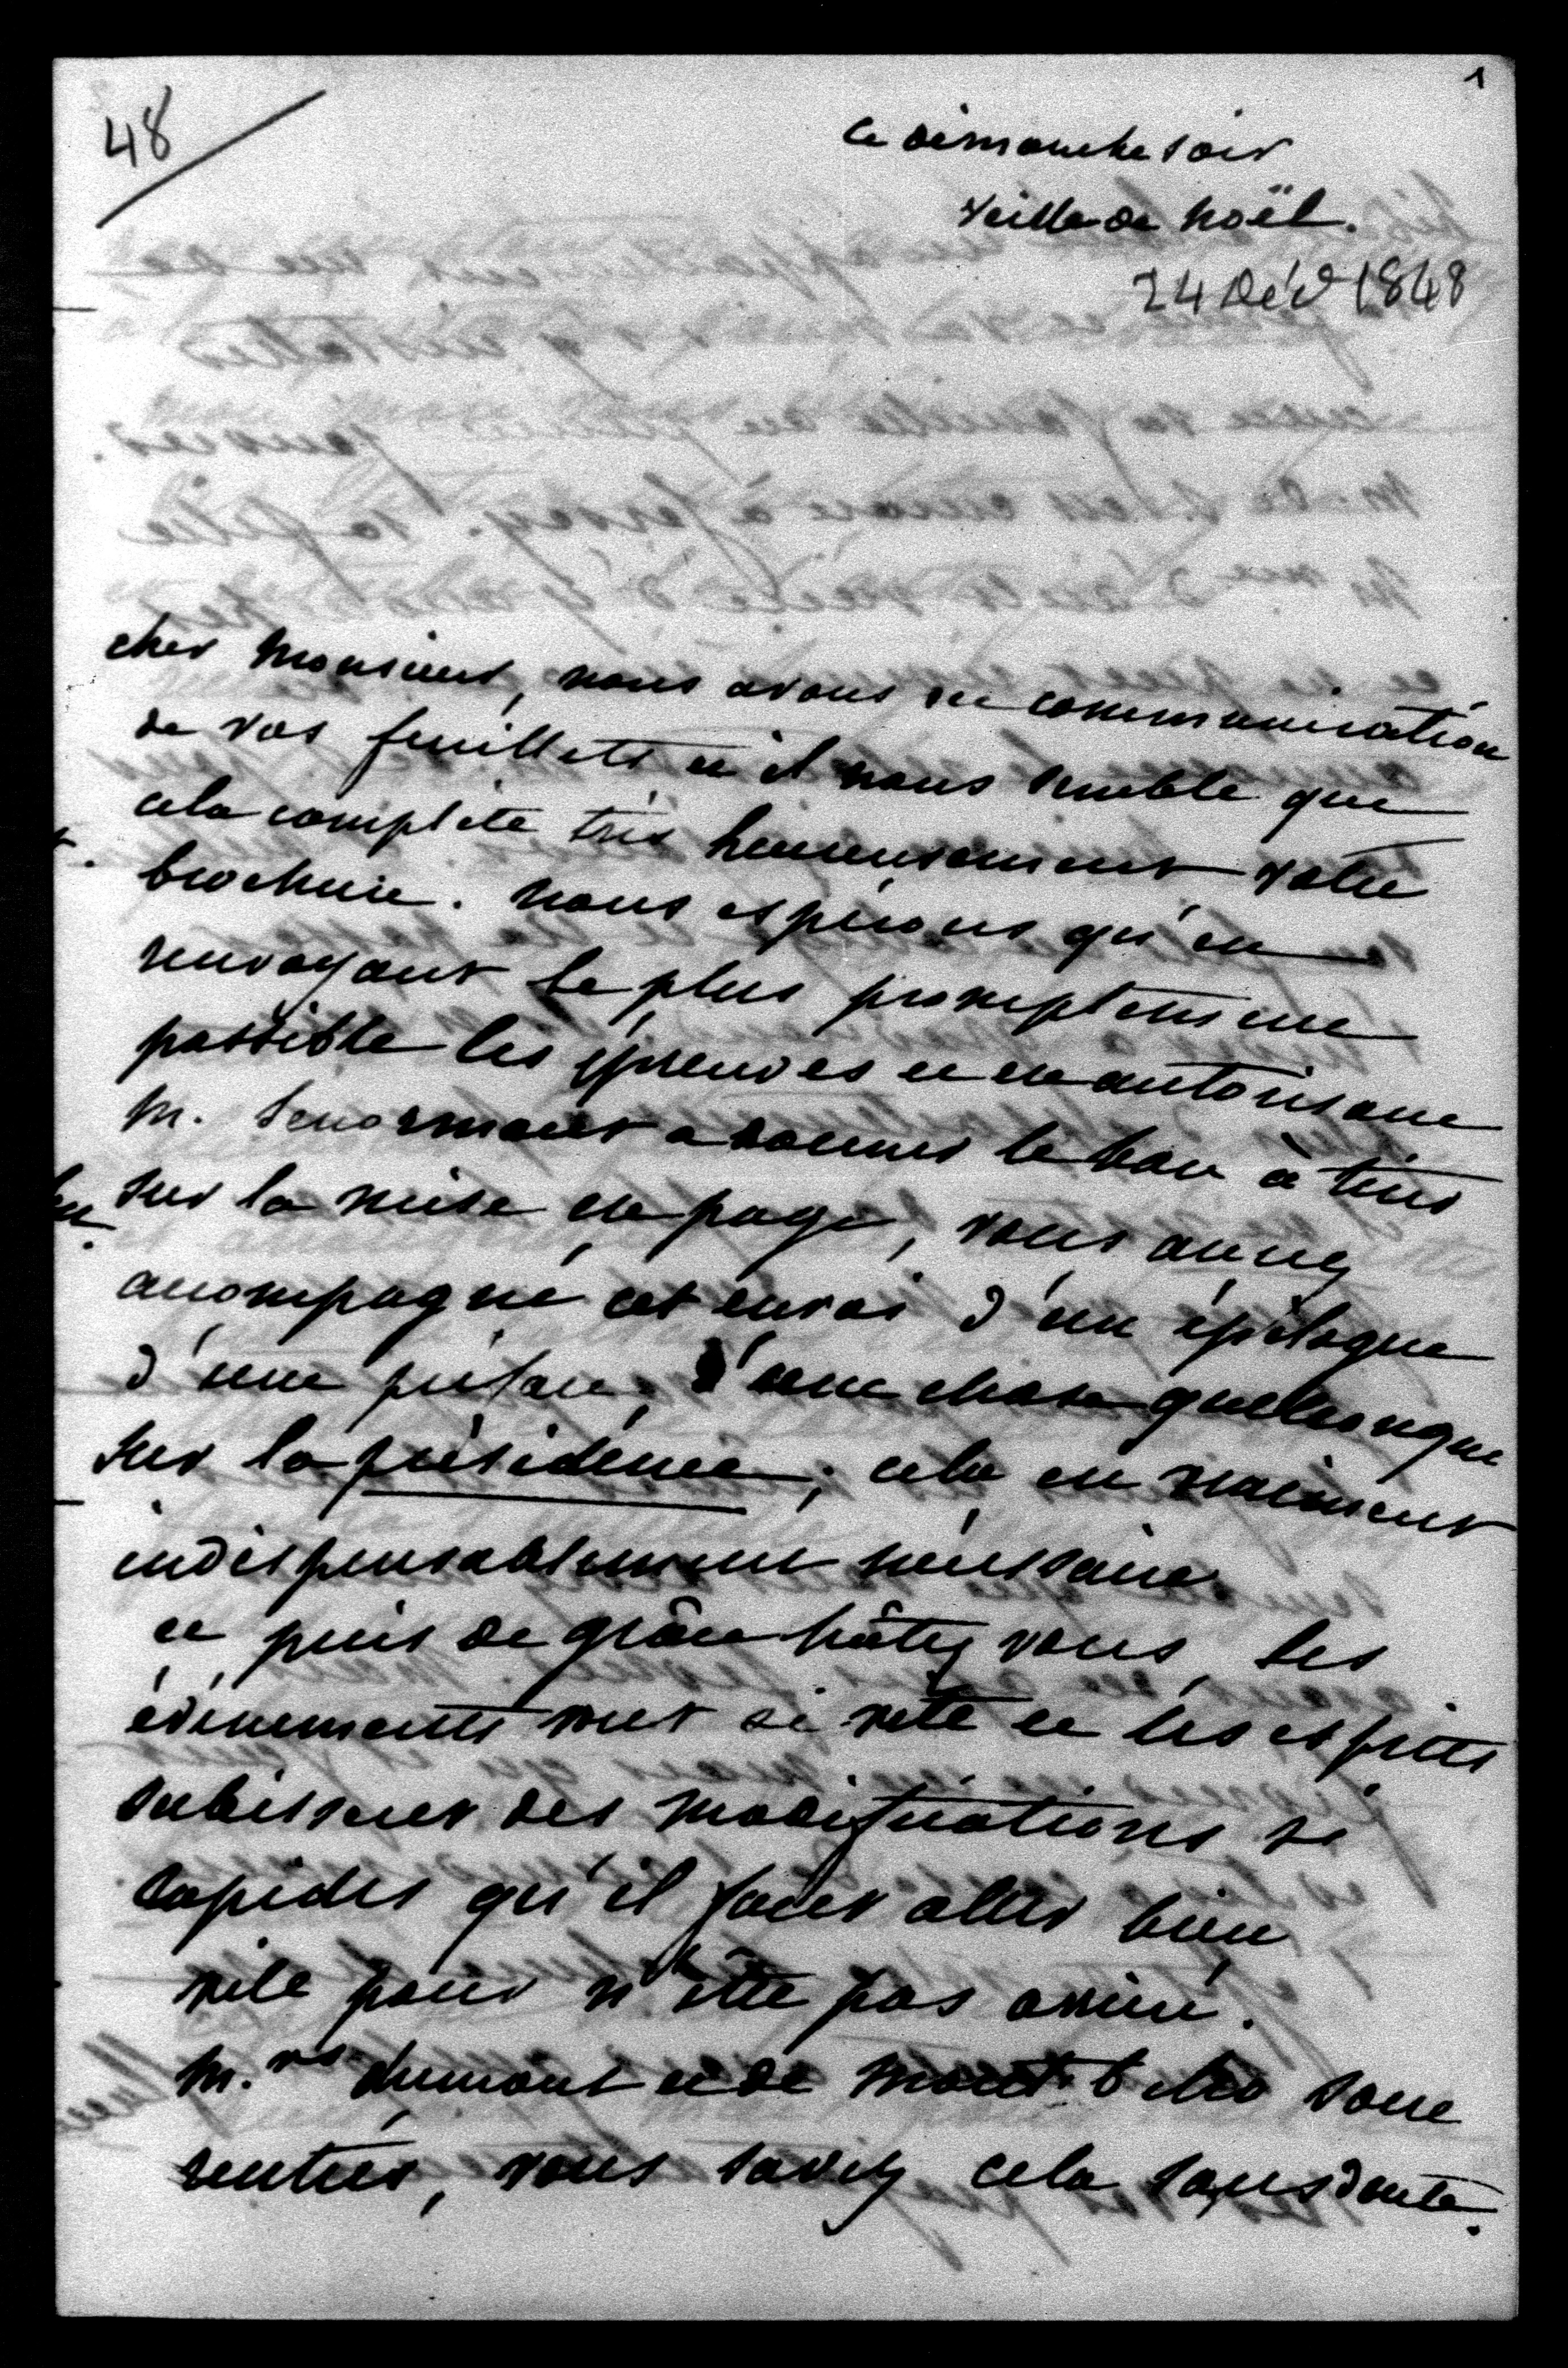 1
48
ce dimanche soir
veille de noël.
24 Déc 1848
cher monsieur, nous avons eu communication
de vos feuillets et il nous semble que
cela complète très heureusement votre
brochure. nous espérons qu'en
renvoyant le plus promptement
possible les épreuves et en autorisant
M. Lenormant a donner le bon à tirer
sur la mise en page, vous aurez
accompagné cet envoi d'un épilogue
d'une préface, d'une chose quelconque
sur la présidence; cela est vraiment
indispensablement nécessaire
et puis de grâce hâtez vous, les
évènements vont si vite et les esprits
subissent des modifications si
rapides qu'il faut aller bien
vite pour n'être pas arriéré.
M.rs dumont et de montebello sont
rentrés, vous savez cela sans doute.